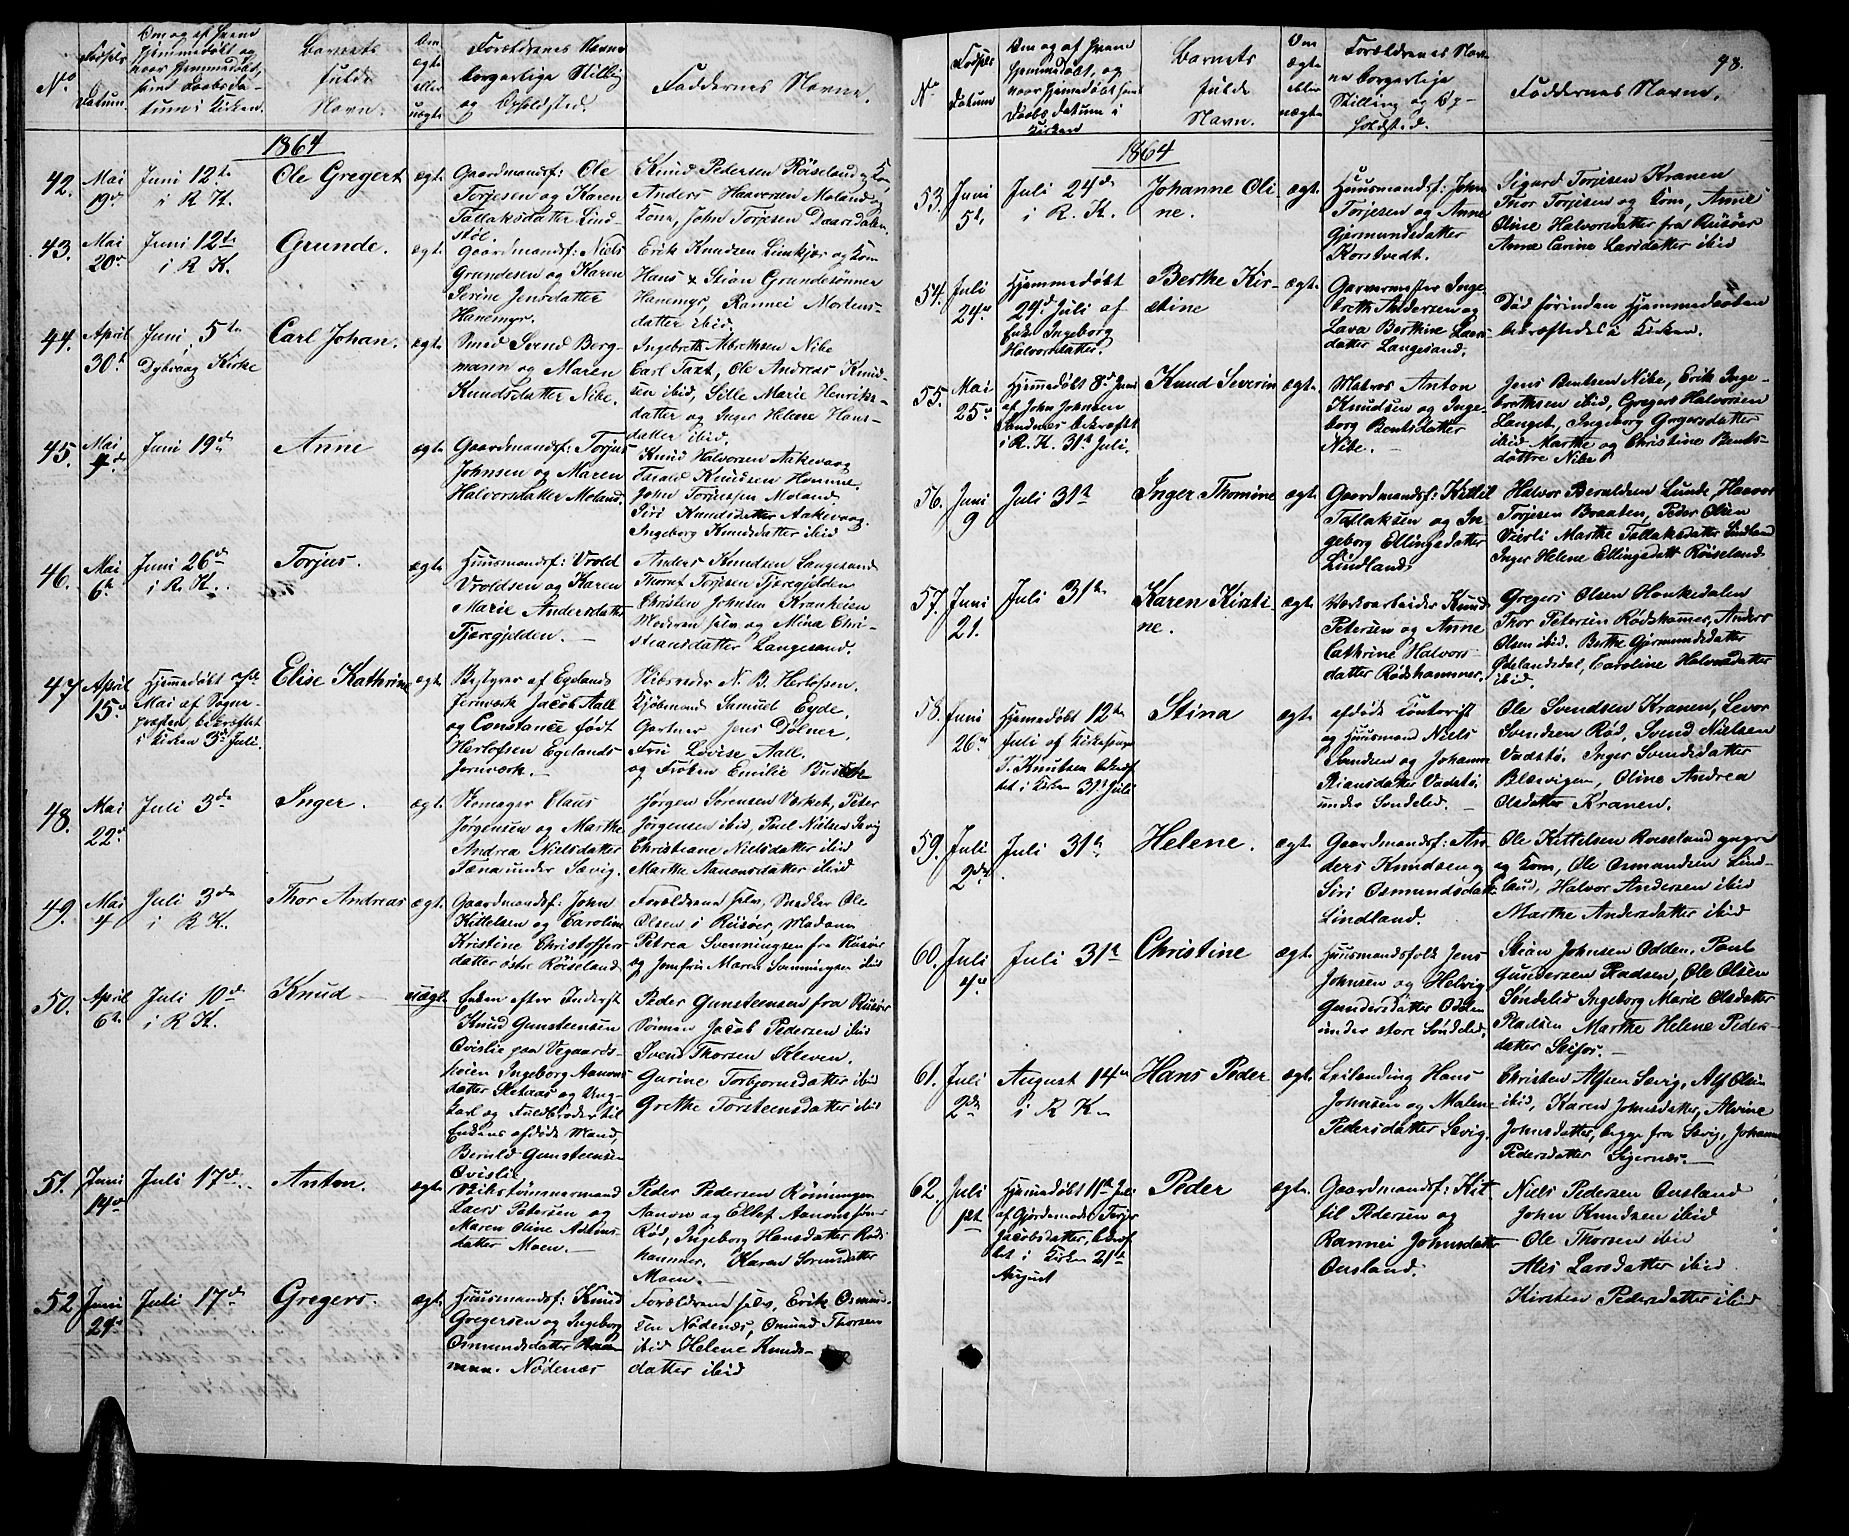 No
Fødsels
Datum.
Om og af hvem
hjemmedøbt og
naar hjemmedøbt,
samt Daabsda-
tum i Kirken.
Barnets
fulde
Navn.
Om
ægte
eller
uægte
Forældrenes Navne
borgerlige Stilling
og Opholdsted.
Faddernes Navne.
1864
42. Mai 19de
Juni 12te
i R. K.
Ole Gregert
ægt.
Gaardmandsf: Ole
Torjesen og Karen
Tallaksdatter Lind-
støl.
Knud Pedersen Røiseland og Kone,
Anders Haavorsen Moland og
Kone, John Torjesen Daarsdalen.
43. Mai 20de
Juni 12te
i R. K.
Grunde.
ægt.
Gaardmandsf: Niels
Grundesen og Karen
Serine Jensdatter
Hanemyr.
Erik Knudsen Limkjær og Kone
Hans & Stian Grundesønner
Hanemyr, Rannei Mortens-
datter ibid.
44. April 30te
Juni 5te
Dybvaag Kirke
Carl Johan.
ægt.
Smed Svend Berg-
mann og Maren
Knudsdatter Nibe.
Ingebreth Abrethsen Nibe
Carl Taxt, Ole Andreas Knud-
sen ibid, Sille Marie Henriks-
datter og Inger Helene Hans-
datter ibid.
45. Mai 4de
Juni 19de
Anne
ægt.
Gaardmandsf: Torjus
Johnsen og Maren
Halvorsdatter Moland.
Knud Halvorsen Aakevaag
Tarald Knudsen Homme.
John Torjussen Moland
Siri Knudsdatter Aakevaag.
Ingeborg Knudsdatter ibid
46. Mai 6te
Juni 26de
i R. K.
Torjus.
ægt.
Huusmandsf: Vrold
Vroldsen og Karen
Marie Andersdatter
Tjæregjelden.
Anders Knudsen Langesand
Thorat Torjesen Tjæregjelden
Christen Johnsen Kranheien
Moderen selv og Mina Chri-
stiansdatter Langesand.
47. April 15de
Hjemmedøbt
Mai af Sogne-
præsten bekræftet
i Kirken 3de Juli.
Elise Kathrine
ægt.
Bestyrer af Egelands
Jernværk Jacob Aall
og Constance født
Herlofsen Egelands
Jernværk.
Skibsreder N. B. Herlofsen.
Kjøbmand Samuel Eyde.
Gartner Jens Dølner.
Fru Lovise Aall.
og Frøken Emilie
48. Mai 22de
Juli 3de
Inger.
ægt.
Skomager Claus
Jørgensen og Marthe
Andrea Nielsdatter
Tæna under Sævig.
Jørgen Sørensen Værket, Peter
Jørgensen ibid, Poul Nielsen Sævig
Christiane Nielsdatter ibid
Marthe Aanonsdatter ibid
49. Mai 4
Juli 3de
i R. K.
Thor Andreas
ægt.
Gaardmandsf: John
Kittelsen og Caroline
Kristine Christoffers-
datter østre Røiseland
Forældrene selv, Snedker Ole
Olsen i Risøer, Madam
Petrea Svenningsen fra Risøer
og Jomfru Maren Svenningsen ibid
50. April 6te
Juli 10de
i R. K.
Knud
uægt.
Enken efter Inderst
Knud Gunsteensen
Qvislie paa Vegaards-
heien Ingeborg Aanons-
datter Sletaas og Ung-
karl og Fuldbroder til
Enkens afdøde Mand,
Bernld Gunsteensen
Qvislie.
Peder Gunsteensen fra Risøer
Sønnen Jacob Pedersen ibid
Svend Thorsen Kleven.
Gurine Torbjørnsdatter ibid
Grethe Torsteensdatter ibid
51. Juni 14de
Juli 17de
Anton.
ægt.
Skibstømmermand
Laers Petersen og
Maren Oline Adams-
datter Moen.
Peder Pedersen Rønningen
Aanon og Ellef Aanonsønner
Rød, Ingeborg Hansdatter Røds-
hammer. Karen Sørensdatter
Moen.
52. Juni 24de
Juli 17de
Gregers.
ægt.
Huusmandsf: Knud
Gregersen og Ingeborg
Osmundsdatter
Nødenæs
Forældrene selv, Erik Osmund-
sen Nødenæs, Omund Thorsen
ibid Helene Knuds-
datter ibid
98.
No
Fødsels
Datum
Om og af hvem
hjemmedøbt, og
naar hjemmedøbt samt
Daabs Datum i
Kirken
Barnets
fulde
Navn.
Om
ægte
eller
uægte
Forældrenes Nav-
ne borgerlige
Stilling og Op-
holdsted.
Faddernes Navne.
1864
53. Juni 5te
Juli 24de
i R. K.
Johanne Oli-
ne.
ægt.
Huusmandsf: John
Torjesen og Anne
Gjermundsdatter
Korstvedt.
Sigurd Torjesen Kranen
Thor Torjesen og Kone, Anne
Oline Halvorsdatter fra Risøer
Anna Carine Larsdatter ibid
54. Juli 24de
Hjemmedøbt
29de Juli af
Enke Ingeborg
Halvorsdatter.
Berthe Kir-
stine
ægt.
Garvermester Inge-
breth Andersen og
Lava Berthine Lars-
datter Langesand.
Død førinden Hjemmedaaben
bekræftedes i Kirken.
55. Mai 25de
Hjemmedøbt 8de Juni
af John Johnsen
Sandnæs bekræftet
i R. K. 31te Juli.
Knud Severin
ægt.
Matros Anton
Knudsen og Inge-
borg Bentsdatter
Nibe.
Jens Bentsen Nibe, Erik Inge-
brethsen ibid, Gregers Halvorsen
Langet, Ingeborg Gregersdatter
ibid Marthe og Christine Bents-
døttre Nibe
56. Juni 9
Juli 31te
Inger Thomine
ægt.
Gaardmandsf: Kittil
Tallaksen og In-
geborg Ellingsdatter
Lindland.
Halvor Beruldsen Lunde Haavor
Torjesen Braaten, Peder Olsen
Vierli Marthe Tallaksdatter Lindland
Inger Helene Ellingsdatt Røiseland
57. Juni 21.
Juli 31te
Karen Kirsti-
ne.
ægt.
Værksarbeider Knud
Petersen og Anne
Cathrine Halvors-
datter Rødshammer.
Gregers Olsen Houkedalen
Thor Petersen Rødshamer, Anders
Olsen ibid. Berthe Gjermundsdatter
Ødelandsdal, Caroline Halvorsdatter
ibid.
58. Juni 26de
Hjemmedøbt 12te
Juli af Kirkesanger
T. Knutsen bekræf-
tet i Kirken 31te Juli
Stina
ægt.
afdøde Contorist
og Huusmand Niels
Svendsen og Johanne
Stiansdatter Vadstø
under Søndeled.
Ole Svendsen Kranen, Levor
Svendsen Rød, Svend Nielsen
Vadstø. Inger Svendsdatter
Blæsvigen, Oline Andrea
Olsdatter Kranen.
59. Juli 2den
Juli 31te
Helene.
ægt.
Gaardmandsf: An-
ders Knudsen og
Siri Osmundsdatt.
Lindland.
Ole Kittelsen Røiseland yngre
og Kone, Ole Osmundsen Lind-
land, Halvor Andersen ibid
Marthe Andersdatter ibid
60. Juli 4de
Juli 31te
Christine
ægt.
Huusmandsfolk Jens
Johnsen og Helvig
Gundersdatter Odden
under store Søndeled.
Stian Johnsen Odden. Poul
Gundersen Pladsen, Ole Olsen
Søndeled Ingeborg Marie Olsdatter
Pladsen Marthe Helene Peders-
datter Stifos.
61. Juli 2den
August 14de
i R. K.
Hans Peder
ægt.
Leilænding Hans
Johnsen og Malene
Pedersdatter Sævig.
Christen Alfsen Sævig, Alf Olsen
ibid, Karen Johnsdatter, Alvine
Johnsdatter, begge fra Sævig, Johanne
Pedersdatter Sigernæs.
62. Juli 1ste
Hjemmedøbt 11te Juli
af Gjordemoder Torjer
Jacobsdatter, bekræf-
tet i Kirken 21te
August
Peder
ægt.
Gaardmandsf: Kit-
til Pedersen og
Rannei Johnsdatter
Ousland.
Niels Pedersen Ousland
John Knudsen ibid
Ole Thorsen ibid
Alis Larsdatter ibid
Kirsten Pedersdatter ibid